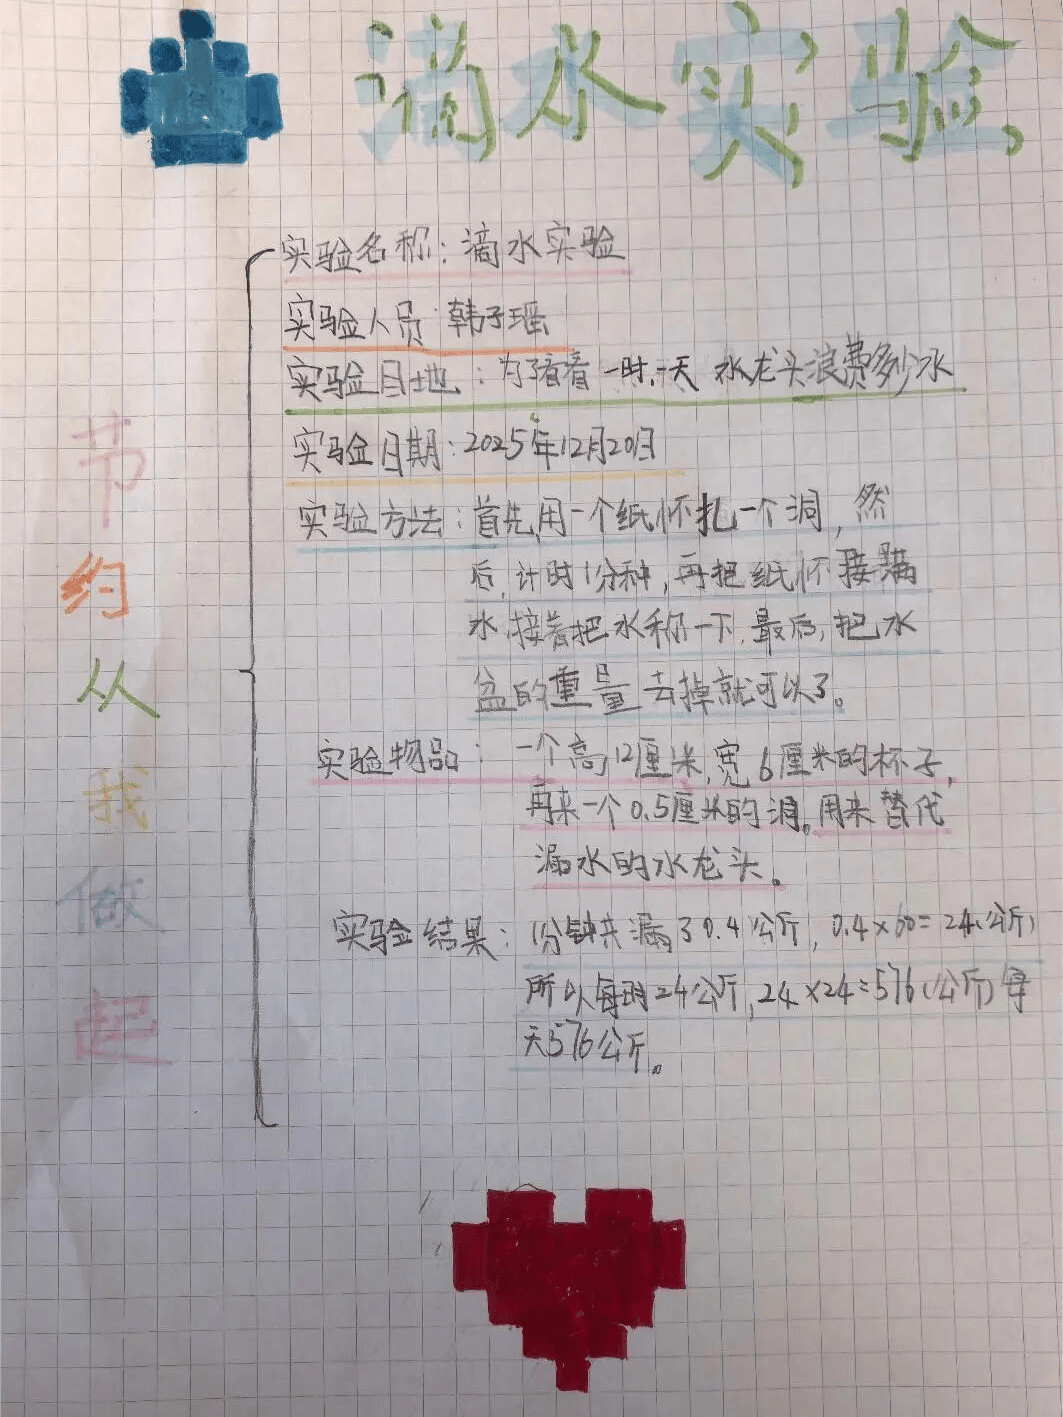 滴水实验
实验名称：滴水实验
实验人员：韩子瑶
实验目地：为了看看一时、一天 水龙头浪费多少水
实验日期：2025年12月20日
实验方法：首先，用一个纸怀扎一个洞，然
后，计时1分种，再把纸怀接满
水，接着把水称一下，最后，把水
盆的重量去掉就可以了。
实验物品：一个高12厘米，宽6厘米的杯子，
再来一个0.5厘米的洞。用来替代
漏水的水龙头。
实验结果：1分钟未漏了0.4公斤，0.4×60=24(公斤)
所以每时24公斤，24×24=576(公斤)每
天576公斤。
节约从我做起